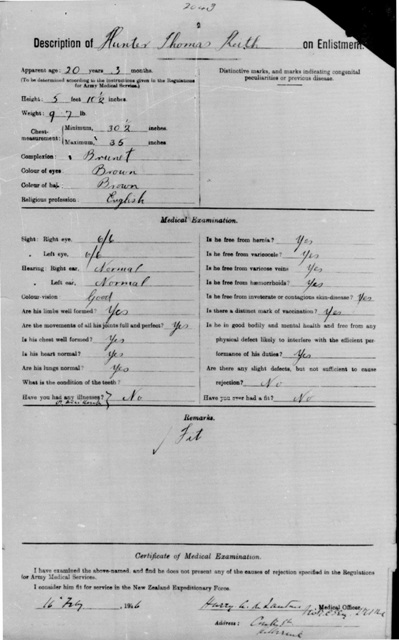 2
Description of Hunter Thomas Keith on Enlistment.
Apparent age: 20 years 3 months.
(To be determined according to the instructions given in the Regulations for Army Medical Service.)
Height: 5 feet 10½ inches
Weight: 9 7 lb.
Chest-measurement: Minimum, 30½ inches.
Maximum, 35 inches.
Complexion: Brunet
Colour of eyes Brown
Colour of hair Brown
Religious profession: English
Distinctive marks, and marks indicating congenital peculiarities or previous disease.
Medical Examination.
Sight: Right eye. 6/6
" Left eye. 6/6
Hearing: Right ear. Normal
" Left ear. Normal
Colour-vision: Good
Are his limbs well formed? Yes
Are the movements of all his joints full and perfect? Yes
Is his chest well formed? Yes
Is his heart normal? Yes
Are his lungs normal? Yes
What is the condition of the teeth?
Have you had any illnesses? Yes No
Is he free from hernia? Yes
Is he free from varicocele? Yes
Is he free from varicose veins Yes
Is he free from hæmorrhoids? Yes
Is he free from inveterate or contagious skin-disease? Yes
Is there a distinct mark of vaccination? Yes
Is he in good bodily and mental health and free from any
physical defect likely to interfere with the efficient per-
formance of his duties? Yes
Are there any slight defects, but not sufficient to cause
rejection? No
Have you ever had a fit? No
Remarks.
Fit
Certificate of Medical Examination.
I have examined the above-named, and find he does not present any of the causes of rejection specified in the Regulations
for Army Medical Services.
I consider him fit for service in the New Zealand Expeditionary Force.
16 Feby 1916
Harry
Medical Officer,
Address: